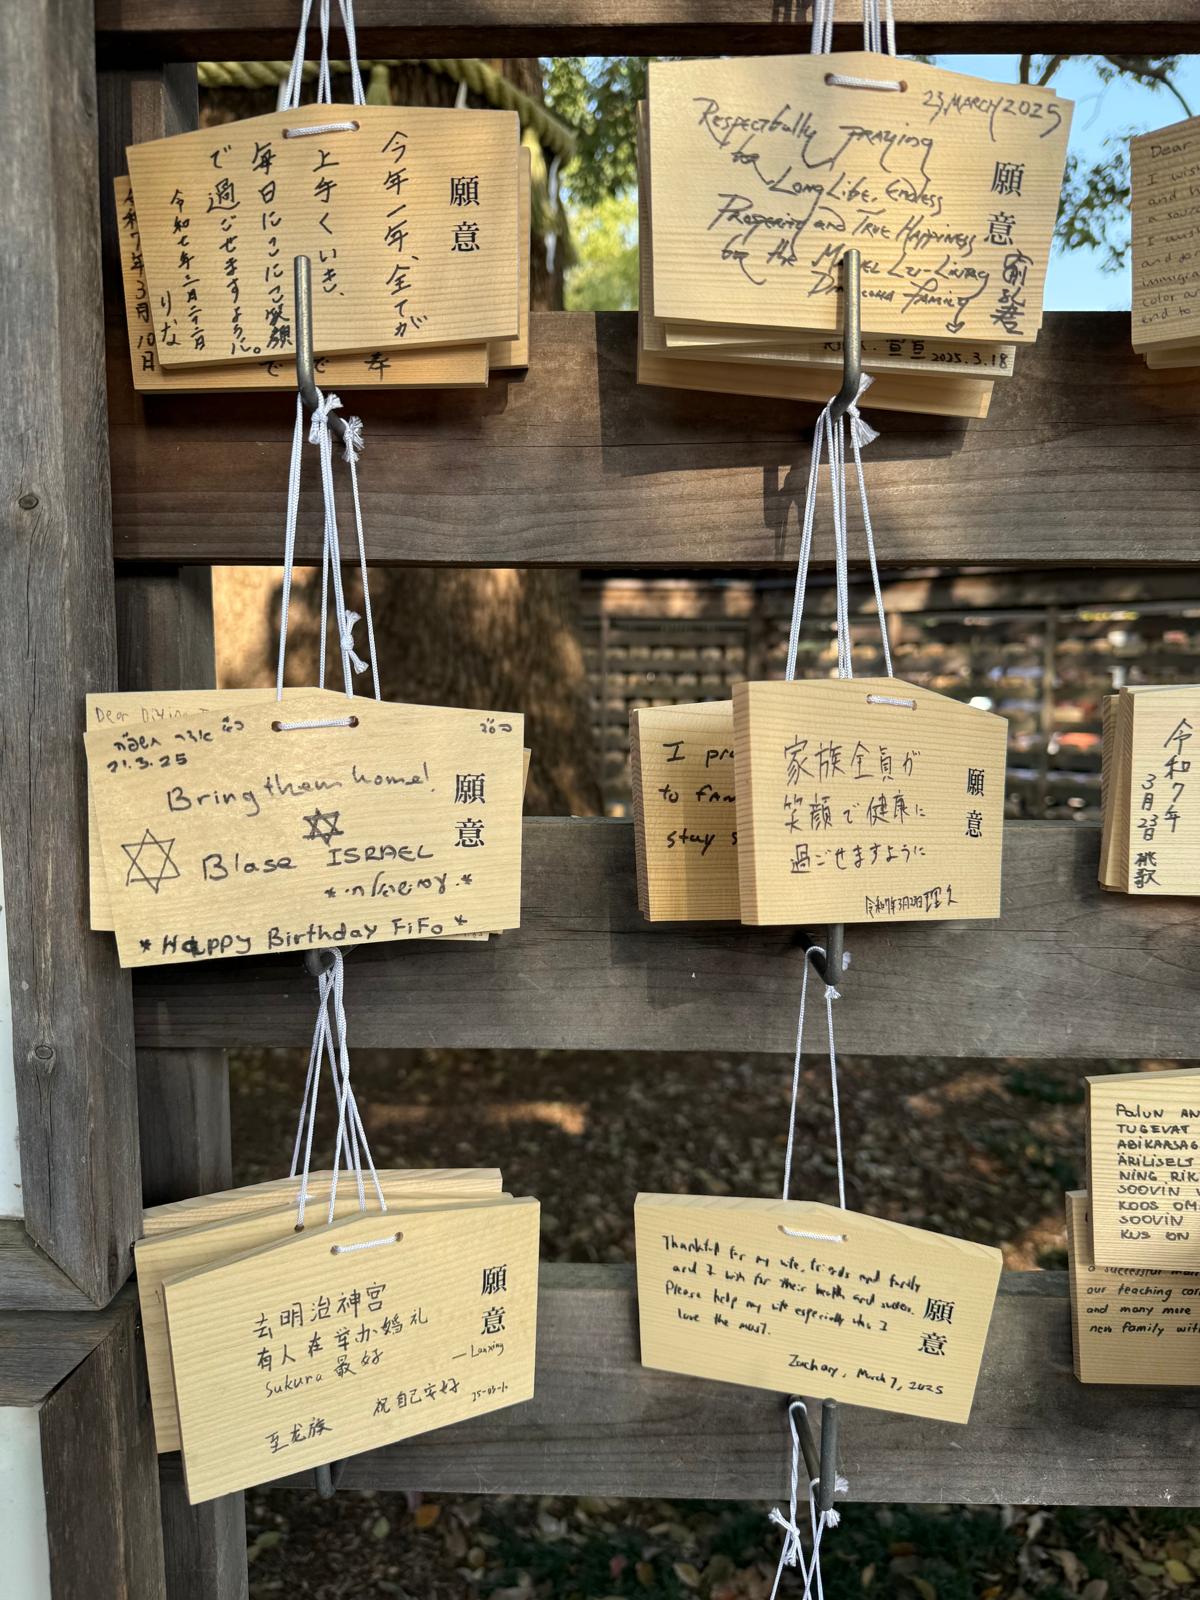 願意
今年一年、全てが
上手くいき、
毎日にこにこ笑顔
で過ごせますように。
令和七年三月二十二日
りな
令和7年3月10日
23, MARCH 2025
Respectfully Praying
for Long Life, Endless
Prosperity and True Happiness
for the
Family
願意
2025.3.18
Dear
I wis
and
end to
Dear Divine
21.3.25
Bring them home!
Blase ISRAEL
*Happy Birthday FiFo*
願意
I pr
to fam
stay s
家族全員が
笑顔で健康に
過ごせますように
願意
令和7年
3月23日
去明治神宮
有人在举办婚礼
Sakura 最好
—Lanxing
祝自己安好
至龙族
願意
Thankful for my wife, friends and family
and I wish for their health and success.
Please help my wife especially who I
love the most.
Zachary, March 7, 2025
願意
PALUN AN
TUGEVAT
ABIKAASAG
ÄRILISELT
NING RIK
SOOVIN
KOOS OM
SOOVIN
KUS ON
our teaching
and many more
new family wit